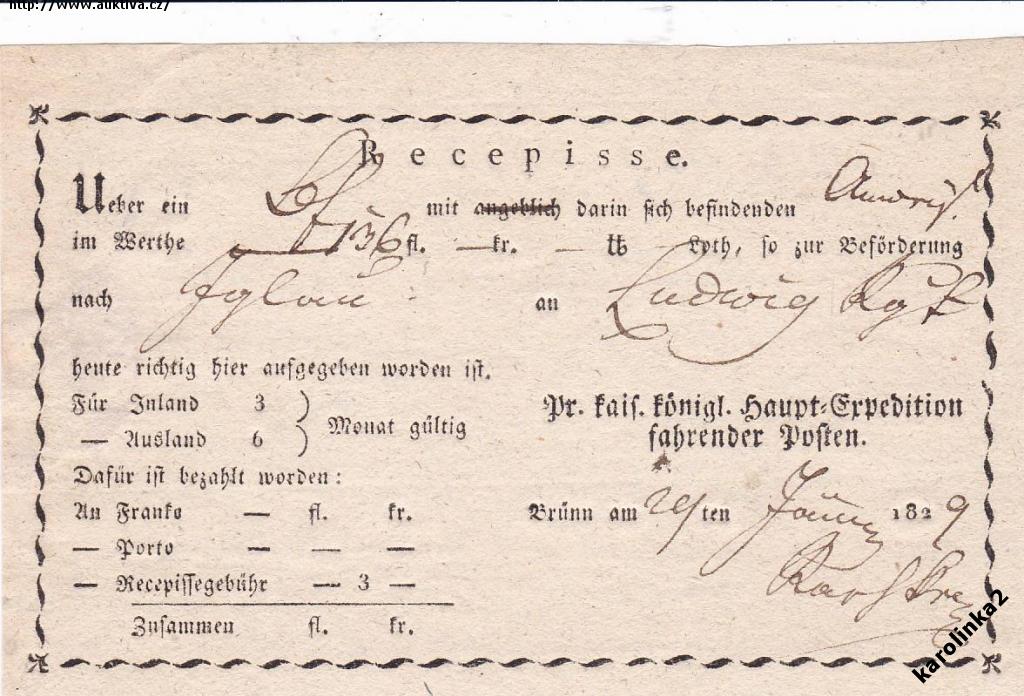 http://www.auktiva.cz/
Recepisse.
Ueber ein mit angeblich darin sich befindenden
im Werthe 136 fl. — kr. — ℔ Loth, so zur Beförderung
nach Iglau an Ludwig Rgt
heute richtig hier aufgegeben worden ist.
Für Inland 3
— Ausland 6
Monat gültig
Pr. kais. königl. Haupt-Expedition
fahrender Posten.
Dafür ist bezahlt worden:
An Franko — fl. kr.
— Porto — — —
— Recepissegebühr — 3 —
Zusammen fl. kr.
Brünn am ten 1829
karolinka2